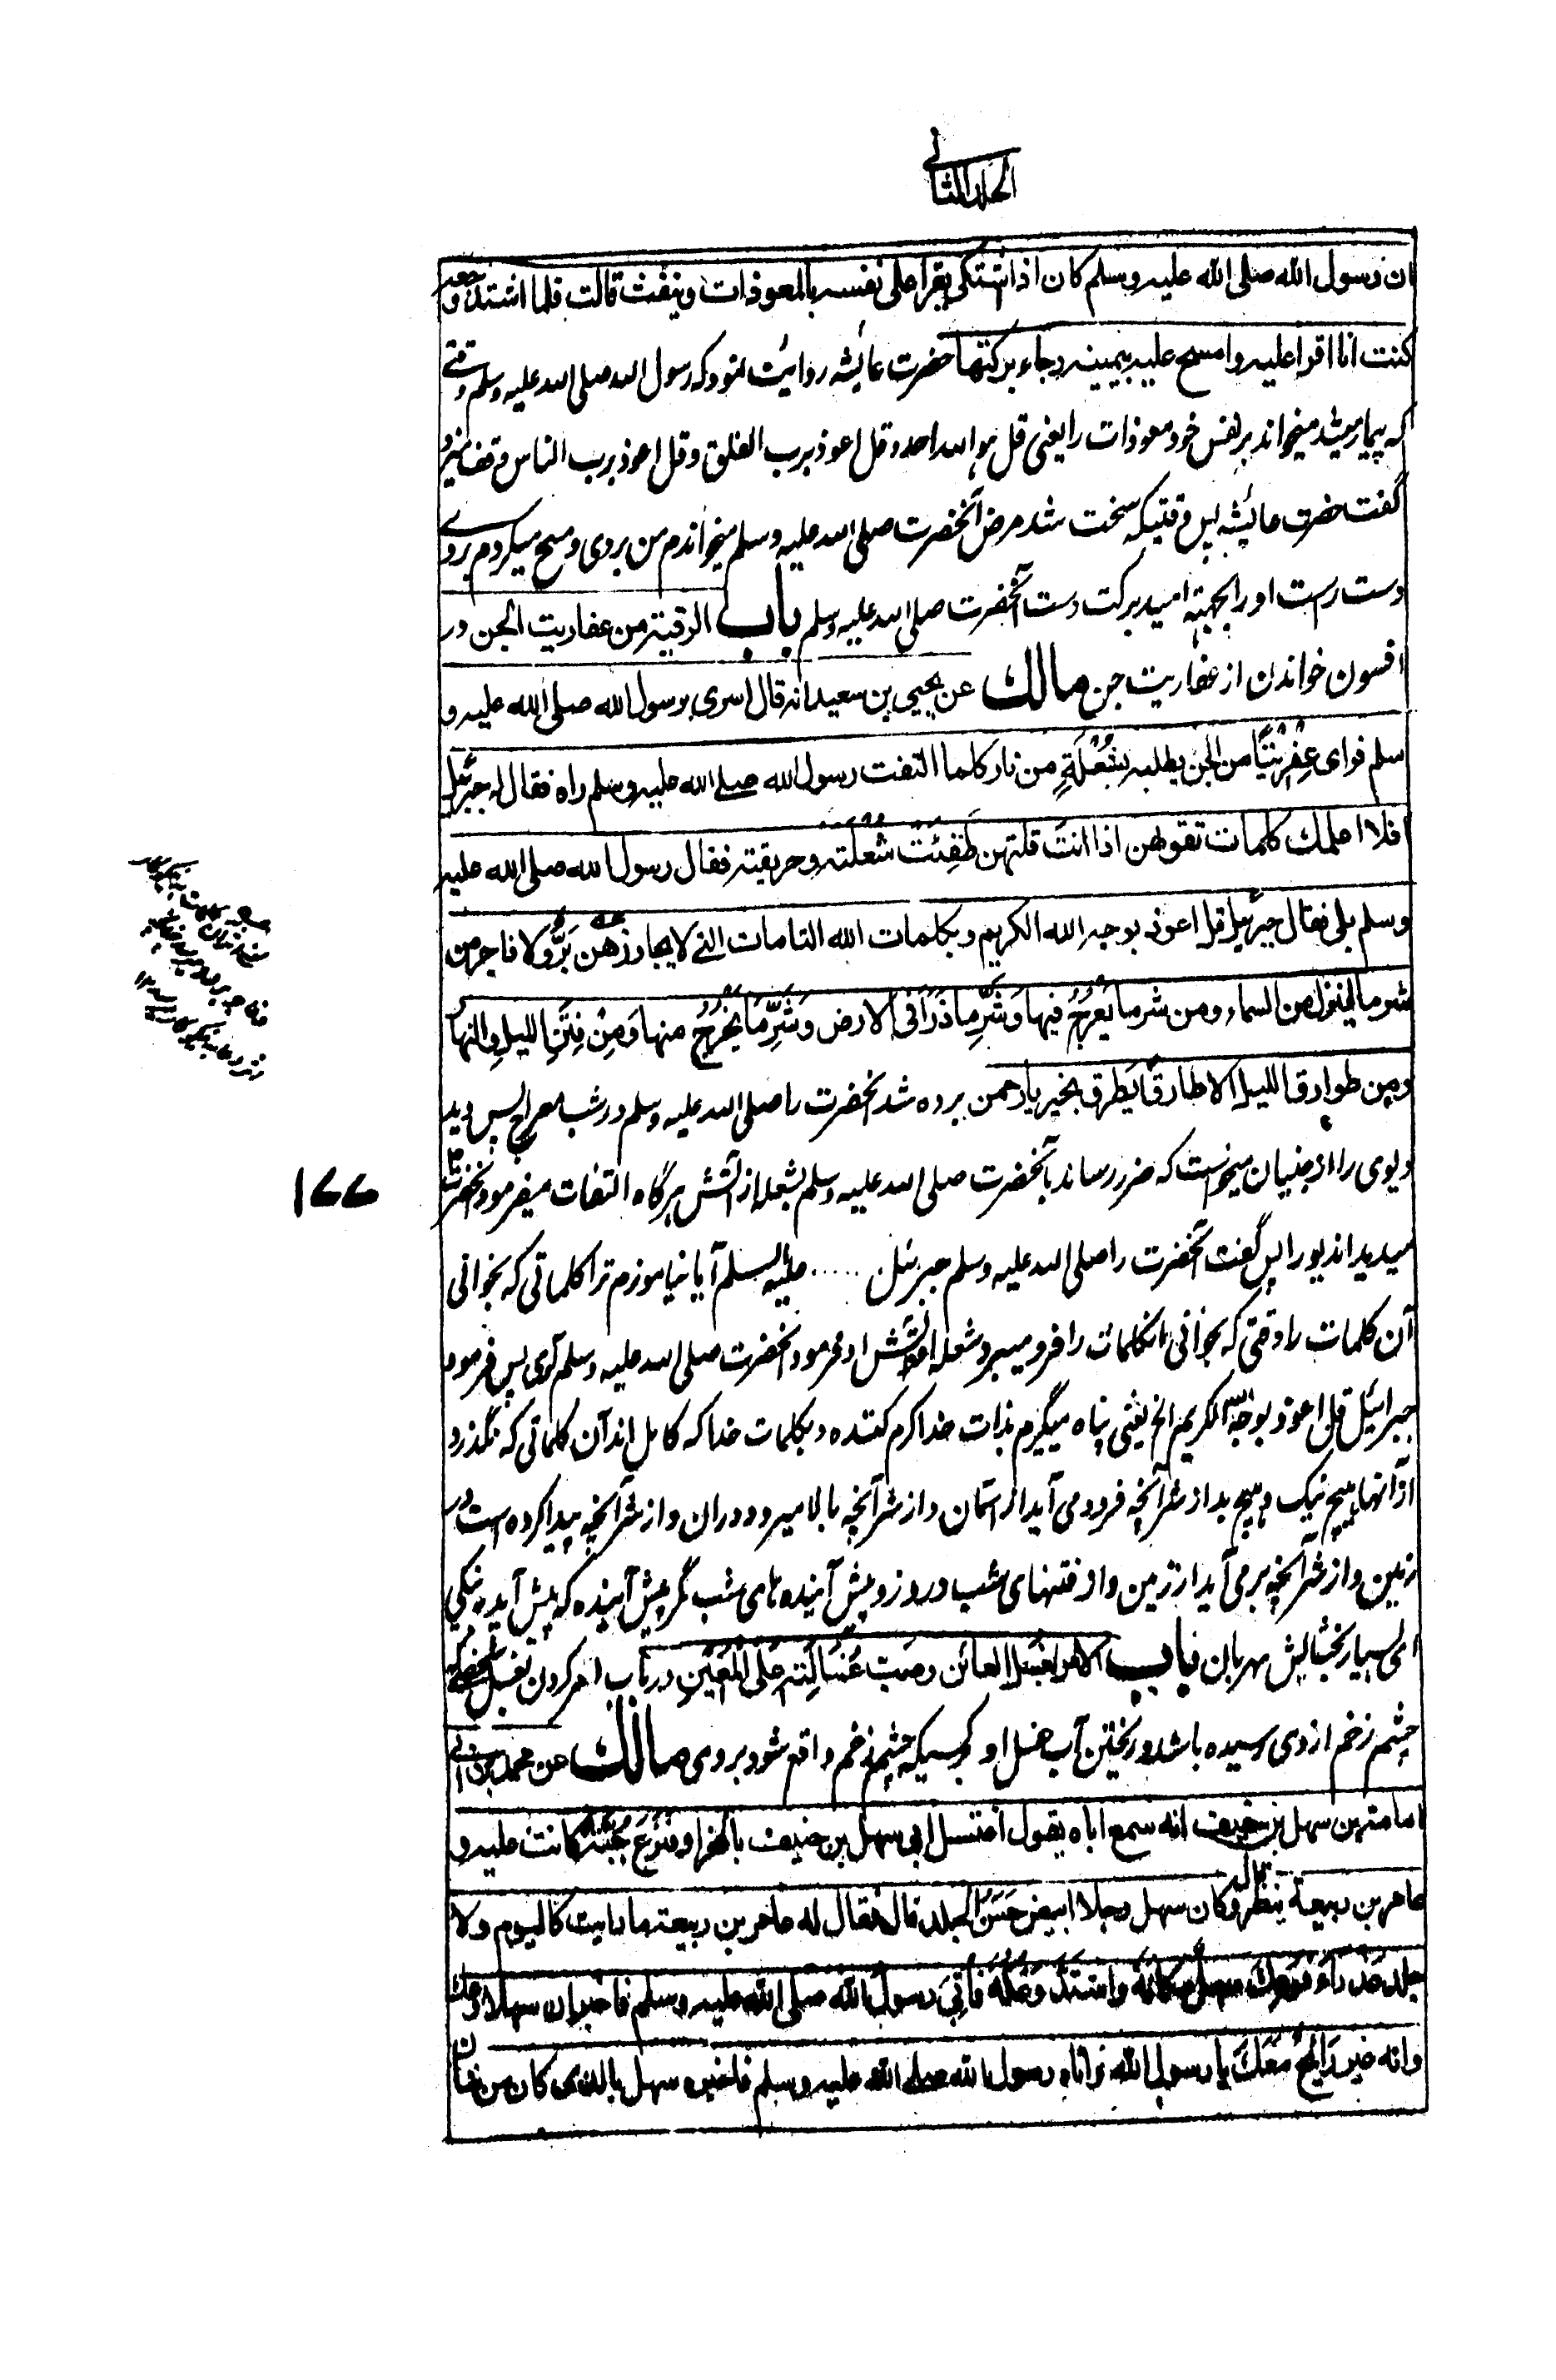 الجلد الثانی
ان رسول الله صلی الله علیه وسلم کان اذا اشتکی یقرا علی نفسه بالمعوذات وینفث قالت فلما اشتد وجعه
کنت انا اقرا علیه وامسح علیه بیمینه رجاء برکتها حضرت عایشه روایت نمود که رسول الله صلی الله علیه وسلم وقتے
که بیمار میشد میخواند بر نفس خود معوذات را یعنی قل هو الله احد و قل اعوذ برب الفلق وقل اعوذ برب الناس و تف میزد
گفت حضرت عایشه پس وقتیکه سخت شد مرض آنحضرت صلی الله علیه وسلم میخواندم من بروی و مسح میکردم بروے
دست راست او را بجهته امید برکت دست آنحضرت صلی الله علیه وسلم باب الرقیة من عفاریت الجن در
افسون خواندن از عفاریت جن مالک عن یحیی بن سعید انه قال اسری برسول الله صلی الله علیه و
سلم فرای عِفْرِیْتًا من الجن یطلبه بِشُعْلَةٍ من نار کلما التفت رسول الله صلے الله علیه وسلم راه فقال له جبرئیل
افلا اعلمک کلمات تقولهن اذا انتَ قلتهن طَفِئَتْ شُعْلَتَه وحریقته فقال رسول الله صلی الله علیه
وسلم بلی فقال جبرئیل قل اعوذ بوجه الله الکریم وبکلمات الله التامات التے لا یجاوزهن بَرٌّ ولا فاجر من
شر ما ینزل من السماء ومن شر ما یَعْرُجُ فیها وَشَرِّ ما ذَرَأ فی الارض وَشَرِّ مَا یَخْرُجُ منها وَمِنْ فِتَنِ اللیل والنهار
ومن طوارق اللیل الا طارقًا یَطرق بخیر یا رحمن برده شد آنحضرت را صلی الله علیه وسلم در شب معراج پس دید
دیوی را از جنیان میخواست که ضرر رساند بآنحضرت صلی الله علیه وسلم بشعله از آتش هرگاه التفات میفرمود آنحضرت
میدید آندیو را پس گفت آنحضرت را صلی الله علیه وسلم جبرئیل ..... علیه السلم آیا نیاموزم ترا کلماتی که بخوانی
آن کلمات را وقتی که بخوانی آنکلمات را فرو میبرد شعله آتش او فرمود آنحضرت صلی الله علیه وسلم آری پس فرمود
جبرائیل قل اعوذ بوجه الله الکریم الخ یعنی پناه میگیرم بذات خدا کرم کننده و بکلمات خدا که کامل اند آن کلماتی که نگذرد
از آنها هیچ نیک و هیچ بد از شر آنچه فرود می آید از آسمان و از شر آنچه بالا میرود دران و از شر آنچه پیدا کرده است در
زمین و از شر آنچه بر می آید از زمین و از فتنهای شب و روز و پیش آینده های شب مگر پیش آینده که پیش آید به نیکی
ای بسیار بخشایش مهربان باب الامر بغسل العائن وصب غُسَالَتِه عَلَی الْمَعِیْنِ در باب امر کردن بغسل شخصیکه
چشم زخم از وی رسیده باشد و ریختن آب غسل او بر کسیکه چشم زخم واقع شود بروی مالک عن محمد بن ابی
امامة بن سهل بن حنیف انه سمع اباه یقول اغتسل ابی سهل بن حنیف بالخرار فَنَزَعَ جُبَّةً کانت علیه و
عامر بن ربیعة ینظر قال وکان سهل رجلا ابیض حَسَنَ الجلد قال فقال له عامر بن ربیعة ما رایت کالیوم ولا
جلد عذراء فَوُعِكَ سهل مَکَانَهُ واشتدَّ وَعْکُهُ فَأُتِیَ رسول الله صلی الله علیه وسلم فاخبر ان سهلا وعك
وانه غیر رَائِحٍ مَعَكَ یا رسول الله فاتاه رسول الله صلی الله علیه وسلم فاخبره سهل بالذی کان من شان
١٧٧